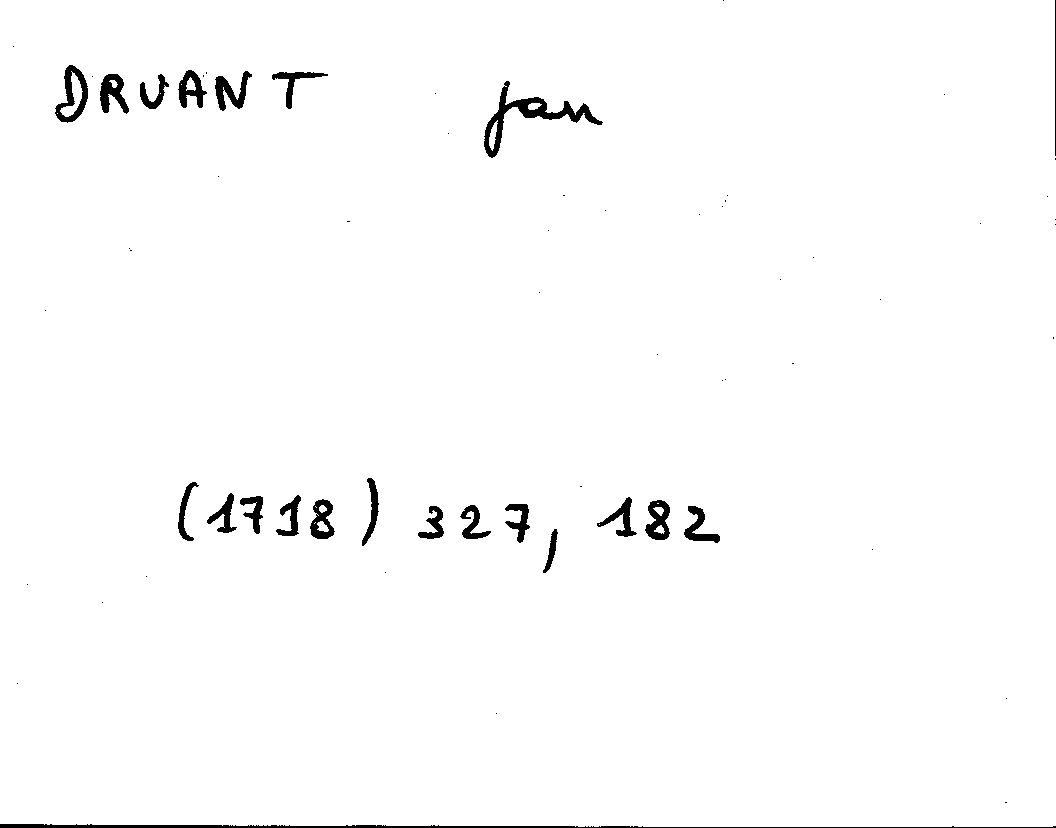 DRUANT Jan
(1718) 327, 182